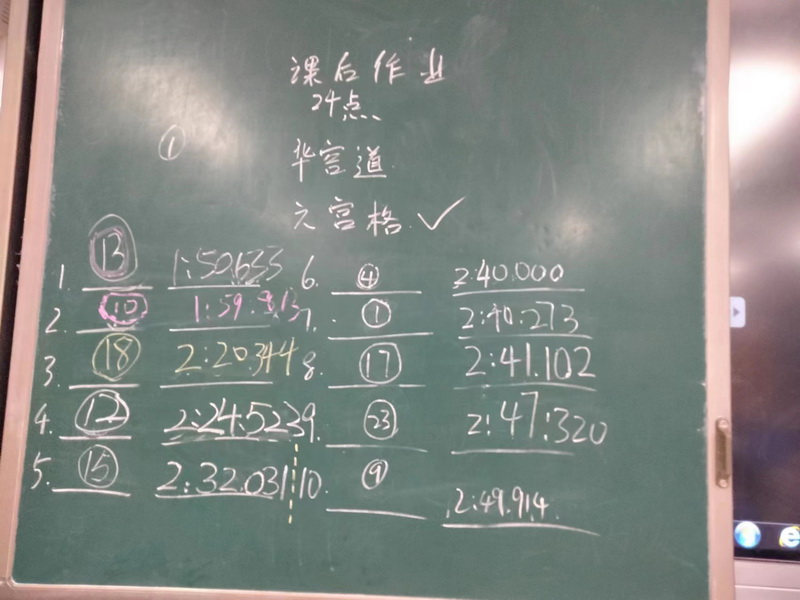 课后作业
24点
①
华容道
六宫格 ✓
1. ⑬ 1:50.633
2. ⑩ 1:59.813
3. ⑱ 2:20.344
4. ⑫ 2:24.523
5. ⑮ 2:32.031
6. ④ 2:40.000
7. ① 2:40.273
8. ⑰ 2:41.102
9. ㉓ 2:47:320
10. ⑨ 2:49.914